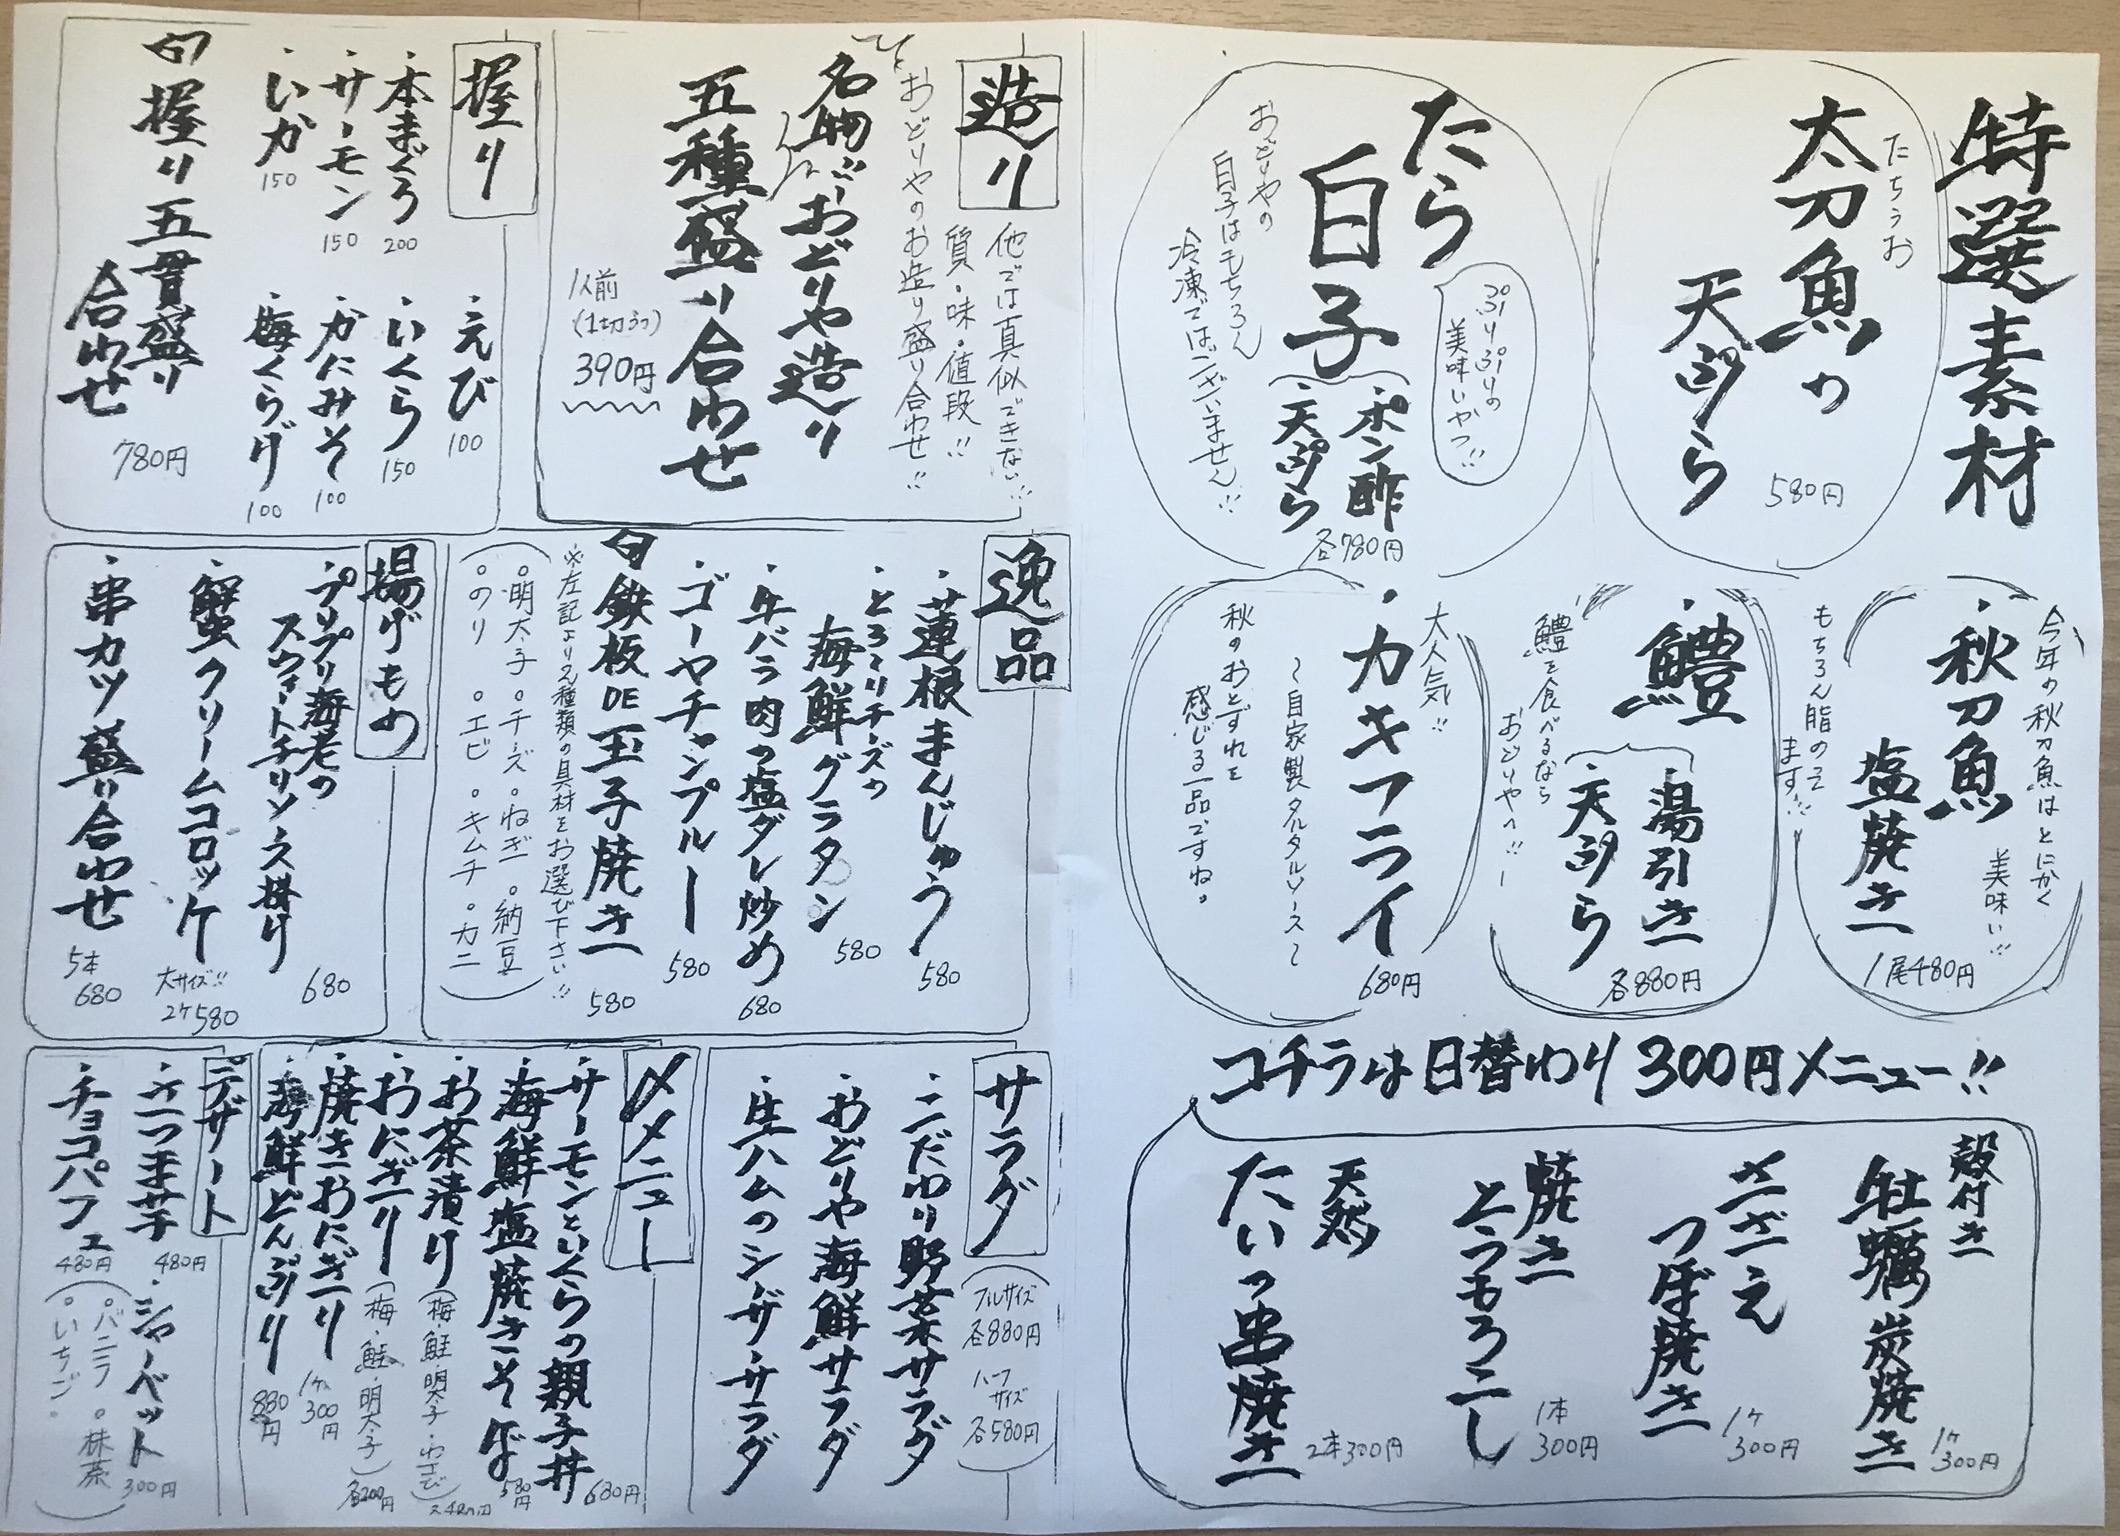 特選素材
たちうお
太刀魚の
天ぷら
580円
たら
白子
ぷりぷりの
美味いやつ!!
・ポン酢
・天ぷら
各780円
おどりやの
白子はもちろん
冷凍ではございません!!
今年の秋刀魚はとにかく
美味い!!
・秋刀魚
塩焼き
1尾480円
もちろん脂のってます!!
・鱧
・湯引き
・天ぷら
各880円
鱧を食べるなら
おどりやへ!!
大人気!!
・カキフライ
680円
〜自家製タルタルソース〜
秋のおとずれを
感じる一品ですね。
コチラは日替わり300円メニュー!!
殻付き
牡蠣炭焼き
1ケ
300円
さざえ
つぼ焼き
1ケ
300円
焼き
とうもろこし
1本
300円
天然
たいの串焼き
2本300円
造り
他では真似できない!!
質・味・値段!!
おどりやのお造り盛り合わせ!!
名物!!おどりや造り
五種盛り合わせ
1人前
(1切ずつ)
390円
握り
・本まぐろ
200
・サーモン
150
・いか
150
・えび
100
・いくら
150
・かにみそ
100
・梅くらげ
100
握り五貫盛り
合わせ
780円
逸品
・蓮根まんじゅう
580
・とろ〜りチーズの
海鮮グラタン
580
・牛バラ肉の塩ダレ炒め
680
・ゴーヤチャンプルー
580
鉄板DE玉子焼き
580
※左記より2種類の具材をお選び下さい!!
。明太子。チーズ。ねぎ。納豆
。のり。エビ。キムチ。カニ
揚げもの
・プリプリ海老の
スウィートチリソース掛け
680
・蟹クリームコロッケ
大サイズ!!
2ケ580
・串カツ盛り合わせ
5本
680
サラダ
フルサイズ
各880円
ハーフ
サイズ
各580円
・こだわり野菜サラダ
・おどりや海鮮サラダ
・生ハムのシーザーサラダ
〆メニュー
・サーモンといくらの親子丼
680円
・海鮮塩焼きそば
580円
・お茶漬け(梅・鮭・明太子・わさび)
・おにぎり(梅・鮭・明太子)
各200円
・焼きおにぎり
1ケ
300円
・海鮮どんぶり
880円
デザート
・さつま芋
480円
・シャーベット
300円
・チョコパフェ
480円
(。バニラ。抹茶
。いちご。)